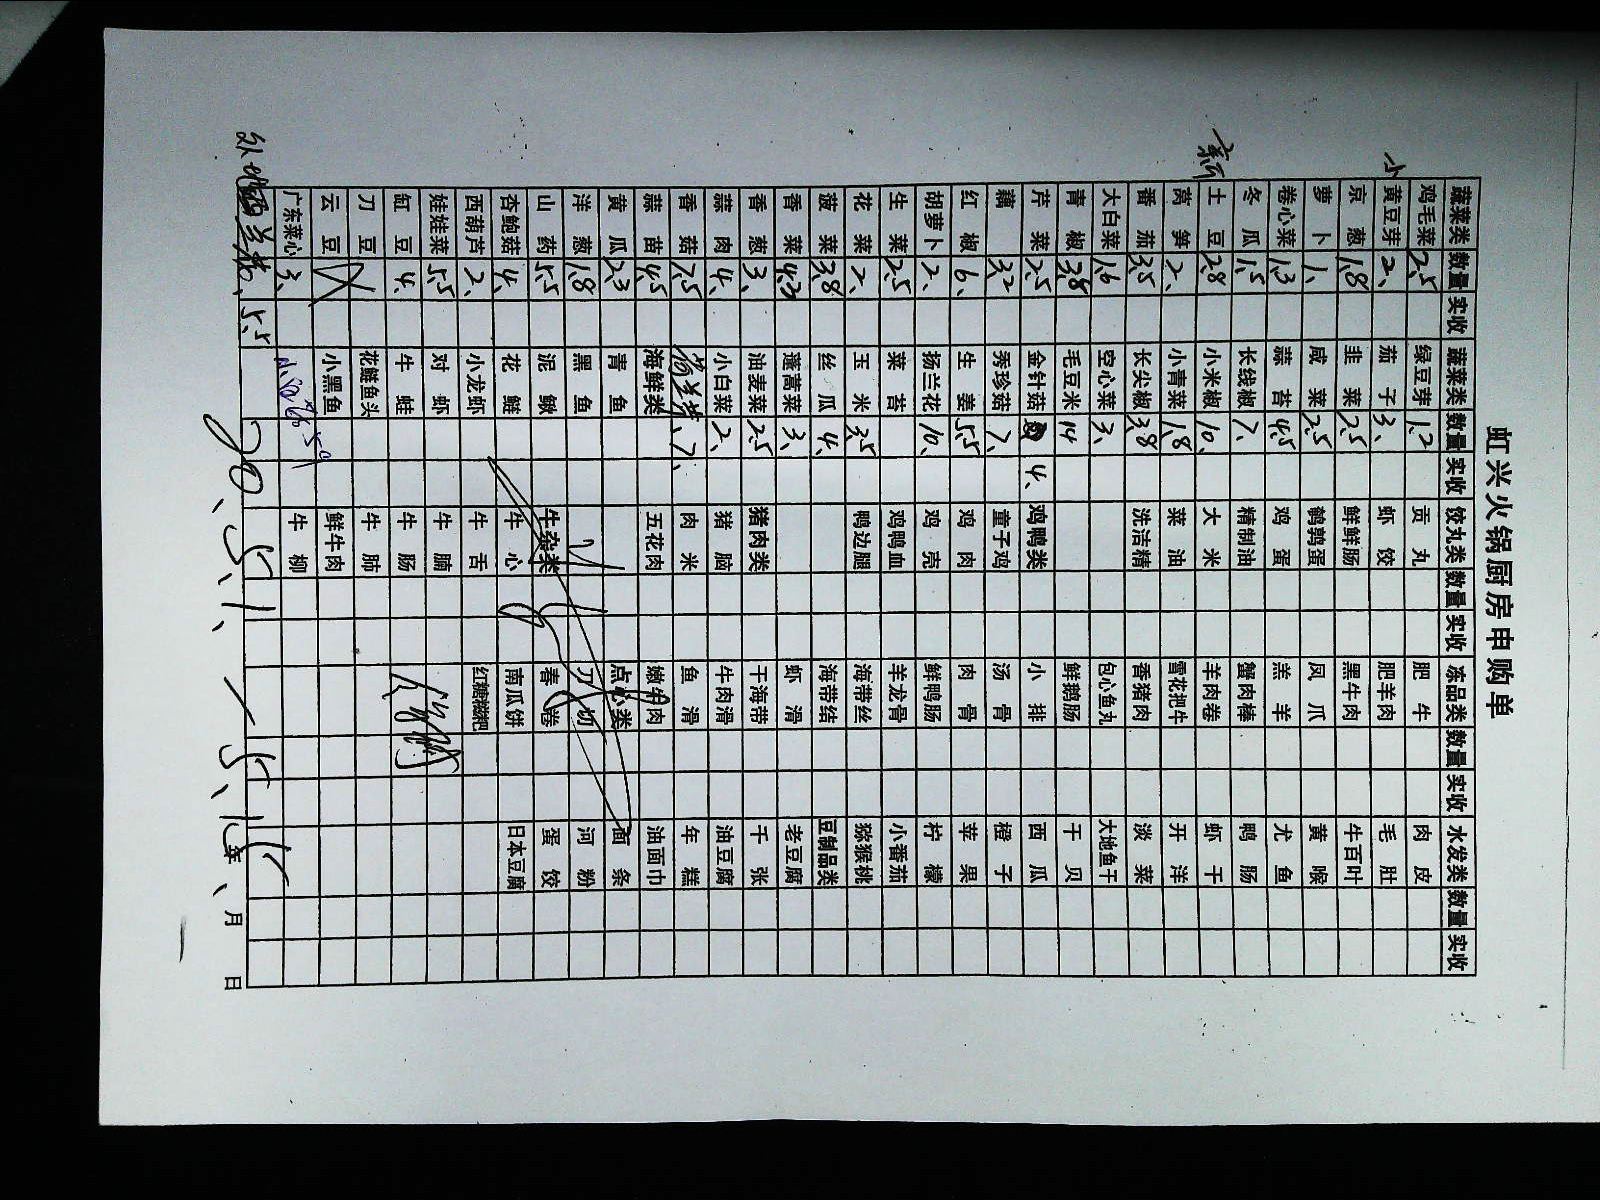 虹兴火锅厨房申购单
蔬菜类 数量 实收 蔬菜类 数量 实收 饺丸类 数量 实收 冻品类 数量 实收 水发类 数量 实收
鸡毛菜 2.5 绿豆芽 1.2 贡丸 肥牛 肉皮
小 黄豆芽 2. 茄子 3. 虾饺 肥羊肉 毛肚
京葱 1.8 韭菜 2.5 鲜鲜肠 黑牛肉 牛百叶
萝卜 1. 咸菜 2.5 鹌鹑蛋 凤爪 黄喉
卷心菜 1.3 蒜苔 4.5 鸡蛋 羔羊 尤鱼
冬瓜 1.5 长线椒 7. 精制油 蟹肉棒 鸭肠
新 土豆 2.8 小米椒 10. 大米 羊肉卷 虾干
莴笋 2. 小青菜 1.8 菜油 雪花把牛 开洋
番茄 3.5 长尖椒 3.8 洗洁精 香猪肉 淡菜
大白菜 1.6 空心菜 3. 包心鱼丸 大地鱼干
青椒 3.8 毛豆米 14 鲜鹅肠 干贝
芹菜 2.5 金针菇 4. 鸡鸭类 小排 西瓜
藕 3.2 秀珍菇 7. 童子鸡 汤骨 橙子
红椒 6. 生姜 5.5 鸡肉 肉骨 苹果
胡萝卜 2. 扬兰花 10. 鸡壳 鲜鸭肠 柠檬
生菜 2.5 菜苔 鸡鸭血 羊龙骨 小番茄
花菜 2. 玉米 3.5 鸭边腿 海带丝 猕猴桃
菠菜 3.8 丝瓜 4. 海带结 豆制品类
香菜 4.3 蓬蒿菜 3. 虾滑 老豆腐
香葱 3. 油麦菜 2.5 猪肉类 干海带 千张
蒜肉 4. 小白菜 2. 猪脑 牛肉滑 油豆腐
香菇 7.5 7. 肉米 鱼滑 年糕
蒜苗 4.5 海鲜类 五花肉 嫩牛肉 油面巾
黄瓜 2.3 青鱼 点心类 面条
洋葱 1.8 黑鱼 刀切 河粉
山药 5.5 泥鳅 牛杂类 春卷 蛋饺
杏鲍菇 4. 花鲢 牛心 南瓜饼 日本豆腐
西葫芦 2. 小龙虾 牛舌 红糖糍粑
娃娃菜 5.5 对虾 牛腩
缸豆 4. 牛蛙 牛肠
刀豆 花鲢鱼头 牛肺
云豆 小黑鱼 鲜牛肉
广东菜心 3. 牛柳
5.5
20、5.1、—5.15
年 月 日